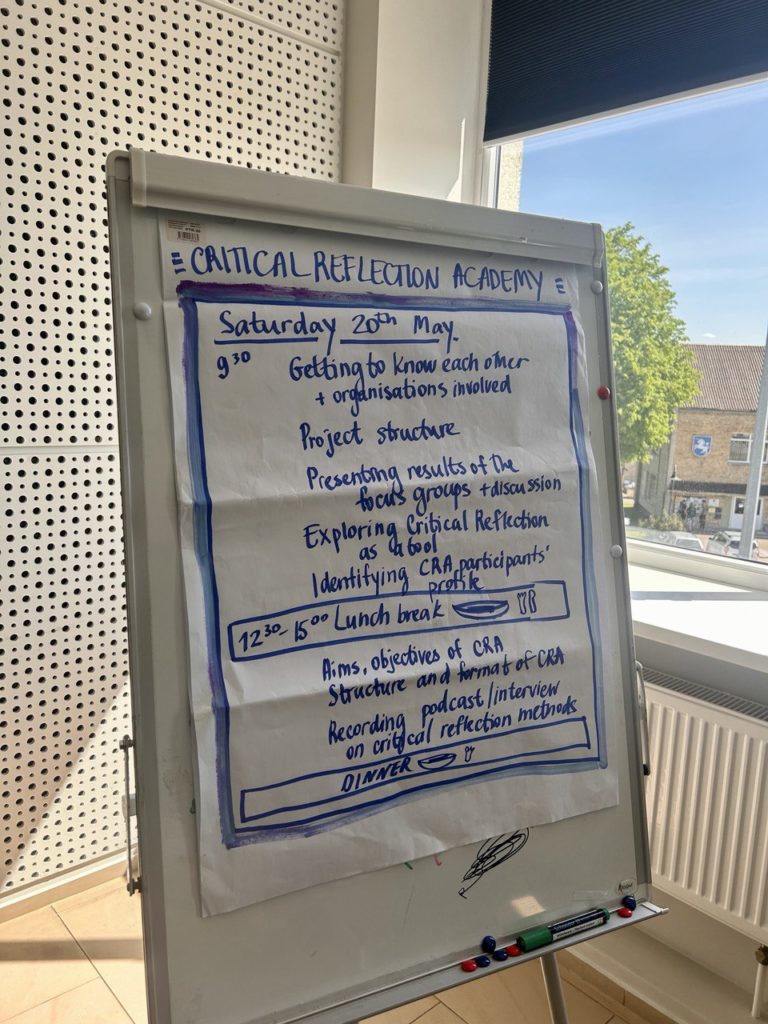 CRITICAL REFLECTION ACADEMY
Saturday 20th May.
9³⁰ Getting to know each other
+ organisations involved
Project structure
Presenting results of the
focus groups + discussion
Exploring Critical Reflection
as a tool
Identifying CRA participants'
profile
12³⁰- 15⁰⁰ Lunch break
Aims, objectives of CRA
Structure and format of CRA
Recording podcast/interview
on critical reflection methods
DINNER